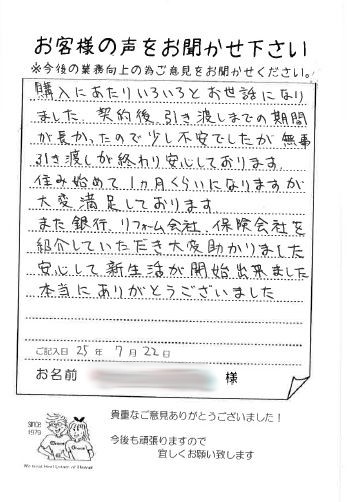 お客様の声をお聞かせ下さい
※今後の業務向上の為ご意見をお聞かせください。
購入にあたりいろいろとお世話になり
ました。契約後、引き渡しまでの期間
が長かったので少し不安でしたが無事
引き渡しが終わり安心しております。
住み始めて1ヵ月くらいになりますが
大変満足しております
また銀行、リフォーム会社、保険会社を
紹介していただき大変助かりました
安心して新生活が開始出来ました
本当にありがとうございました
ご記入日 25 年 7 月 22 日
お名前 様
SINCE
1979
貴重なご意見ありがとうございました!
今後も頑張りますので
宜しくお願い致します